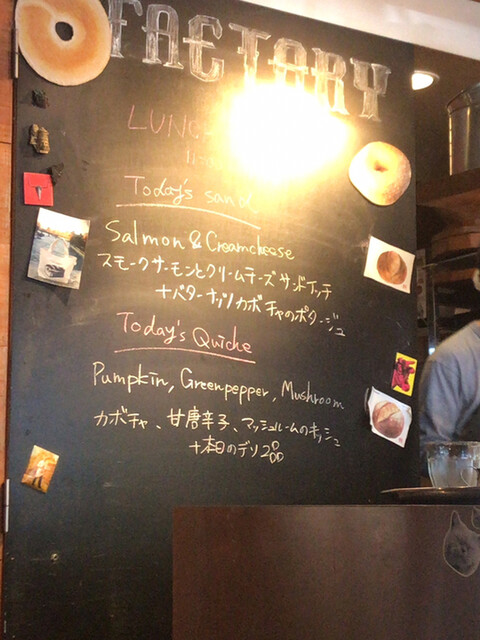 FACTORY
LUNCH
Today's sand
Salmon & Creamcheese
スモークサーモンとクリームチーズサンドイッチ
+バターナッツカボチャのポタージュ
Today's Quiche
Pumpkin, Greenpepper, Mushroom
カボチャ、甘唐辛子、マッシュルームのキッシュ
+本日のデリ2品